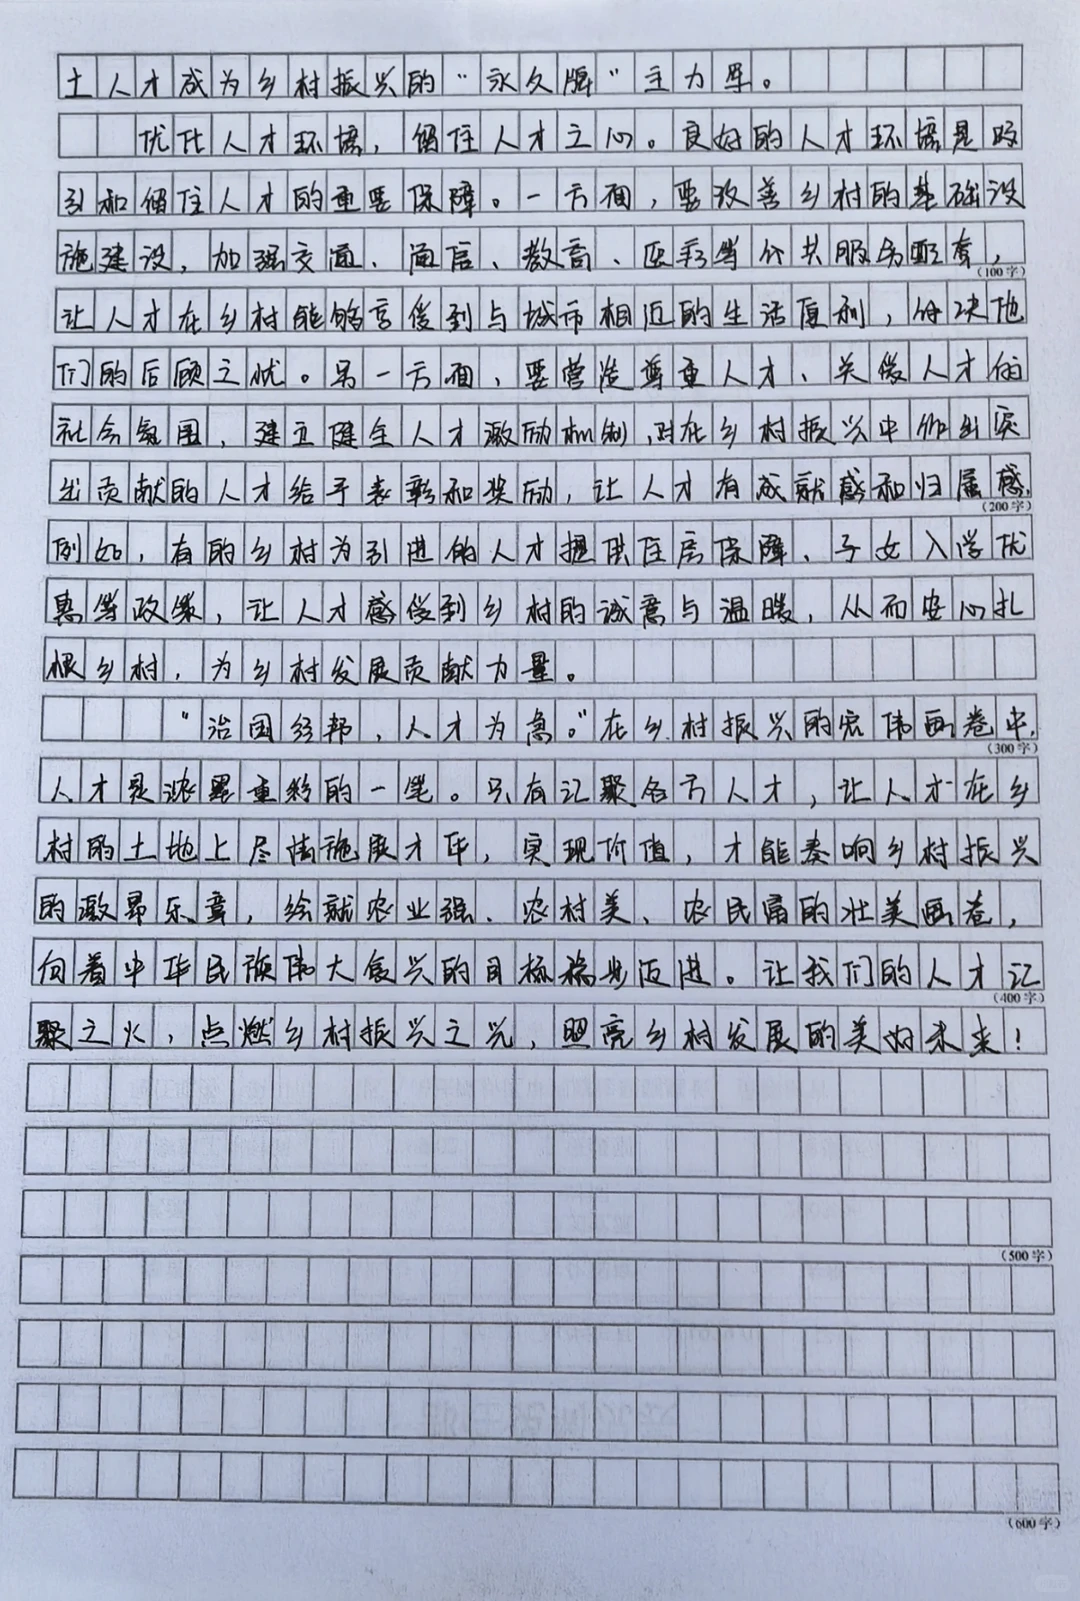 土人才成为乡村振兴的“永久牌”主力军。
优化人才环境，留住人才之心。良好的人才环境是吸
引和留住人才的重要保障。一方面，要改善乡村的基础设
施建设，加强交通、通信、教育、医疗等公共服务配套，
(100字)
让人才在乡村能够享受到与城市相近的生活便利，解决他
们的后顾之忧。另一方面，要营造尊重人才、关爱人才的
社会氛围，建立健全人才激励机制，对在乡村振兴中做出突
出贡献的人才给予表彰和奖励，让人才有成就感和归属感。
(200字)
例如，有的乡村为引进的人才提供住房保障、子女入学优
惠等政策，让人才感受到乡村的诚意与温暖，从而安心扎
根乡村，为乡村发展贡献力量。
“治国经邦，人才为急。”在乡村振兴的宏伟画卷中，
(300字)
人才是浓墨重彩的一笔。只有汇聚各方人才，让人才在乡
村的土地上尽情施展才华，实现价值，才能奏响乡村振兴
的激昂乐章，绘就农业强、农村美、农民富的壮美画卷，
向着中华民族伟大复兴的目标稳步迈进。让我们的人才汇
(400字)
聚之火，点燃乡村振兴之光，照亮乡村发展的美好未来！
(500字)
(600字)